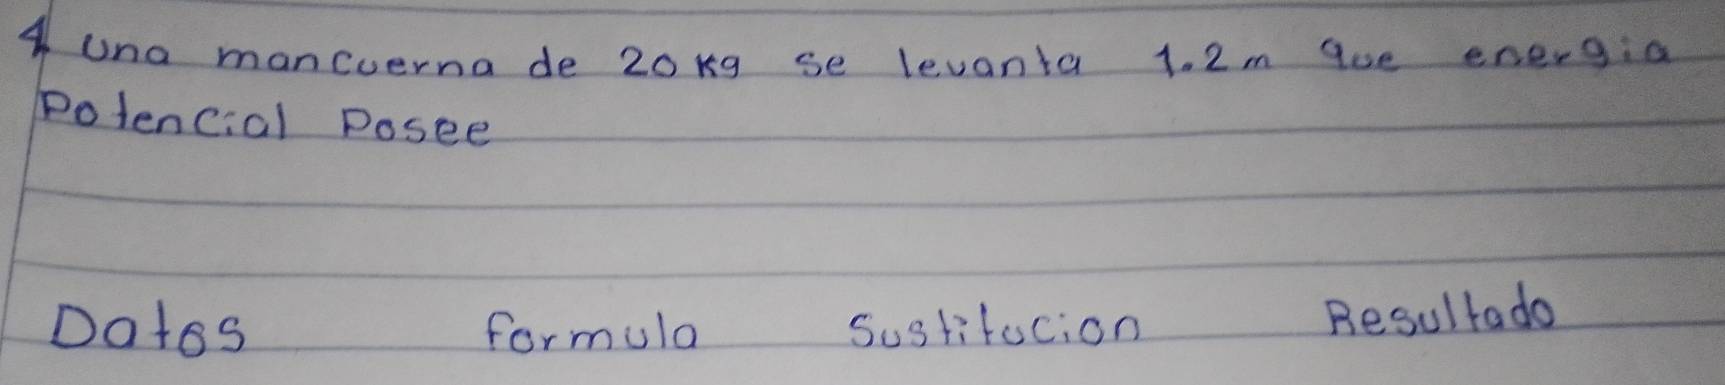 4 una mancuerna de 20 kg se levanta 1.2m que energia
Potencial Posee
Datos formula Sustitucion Resultado